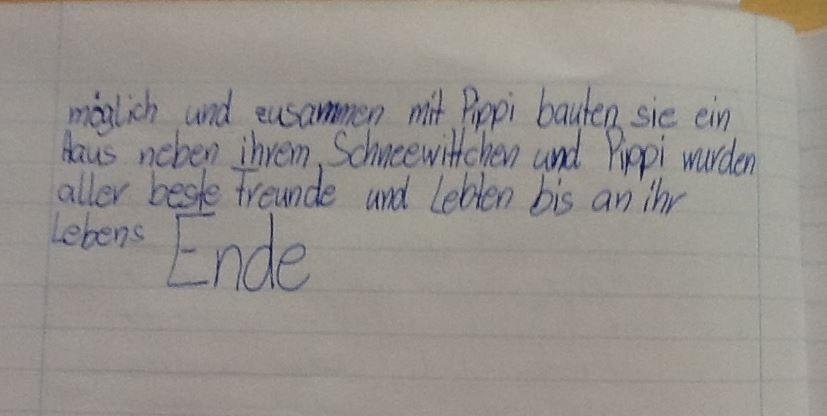 möglich und zusammen mit Pippi bauten sie ein
Haus neben ihrem. Schneewittchen und Pippi wurden
aller beste Freunde und Lebten bis an ihr
Lebens Ende